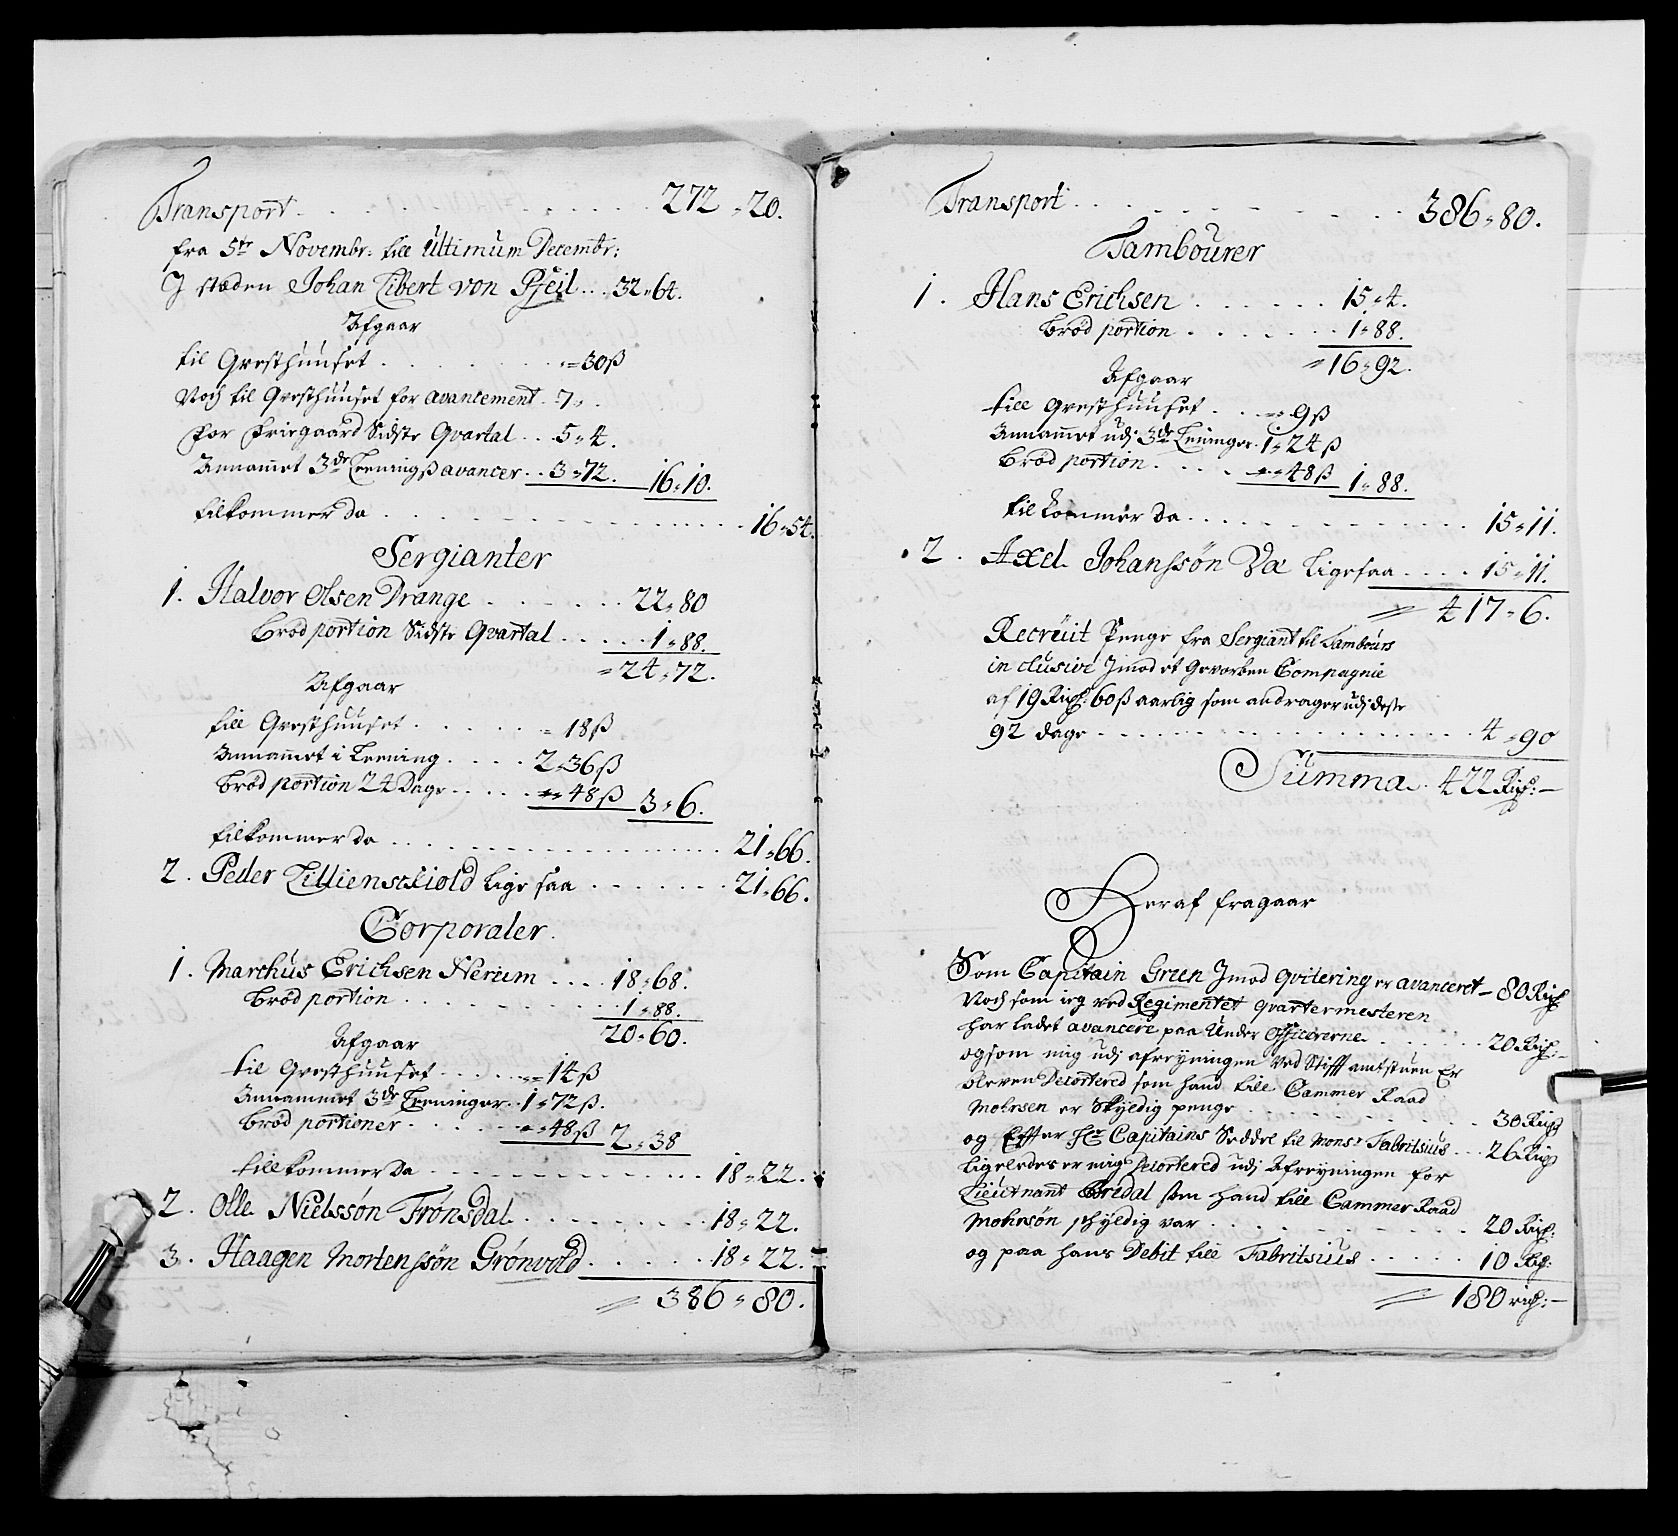 Transport . . . . . . . . . 272 " 20.
fra 5te Novembr: till ultimum Decembr:
I stæden Johan Libert von Pfeil . . . 32 " 64.
Afgaar
til Qvesthuuset . . . . . . . " = 30 ß
Noch til Qvesthuuset for avancement . 7 " .
For Friegaard Sidste Qvartal . . 5 " 4.
Annammet 3de Leenings avancer . . 3 " 72. 16 " 10.
tilkommer da . . . . . . . . . . . 16 " 54.
Sergianter
1. Halvor Olsen Drange . . . . . . 22 " 80
brød portion Sidste Qvartal . . . . . 1 " 88.
= 24 " 72.
Afgaar
till Qvesthuuset . . . . . . = 18 ß
Annammet i Leening . . . . 2 " 36 ß
brød portion 24 Dage . . . . " = 48 ß 3 " 6.
tilkommer da . . . . . . . . . . . . . 21 " 66.
2. Peder Lillienschiold lige saa . . . . . . . 21 " 66.
Corporaler.
1. Marchus Erichsen Nerium . . . . 18 " 68.
brød portion . . . . . . . . . 1 " 88.
20 " 60.
Afgaar
til Qvesthuuset . . . . . " = 14 ß
Annammet 3de Leeninger . . 1 " 72 ß.
brød portioner . . . . . " = 48 ß 2 " 38
till kommer da . . . . . . . . . . . . 18 " 22.
2. Olle Nielssøn Trønsdal . . . . . . . . . 18 " 22.
3. Haagen Mortenssøn Grønvold . . . . . . 18 " 22.
= 386 " 80.
Transport . . . . . . . . . . 386 " 80.
Tambourer
1. Hans Erichsen . . . . . . 15 " 4.
brød portion . . . . . . . 1 " 88.
= 16 " 92.
Afgaar
till Qvesthuuset . . . " = 9 ß
Annammet udi 3de Leeninger . 1 " 24 ß
brød portion . . . . " = 48 ß 1 " 88.
til kommer da . . . . . . . . . . . . 15 " 11.
2. Axel Johanssøn Va ligesaa . . . . 15 " 11.
= 417 " 6.
Recruit Penge fra Sergiant til Tambours
inclusive Imod et Gevorben Compagnie
af 19 Rixd: 60 ß aarlig som andrager udi deste
92 dage . . . . . . . . . . . . . . . . . 4 " 90
Summa . 422 Rixd: —
Heraf fragaar
Som Capitain Green Imod qvitering er avanceret — 80 Rixd
Noch som ieg ved Regimentet Qvartermesteren
har ladet avancere paa Under Officererne . . . . . . 20 Rixd: —
og som mig udi afreyningen ved Stifft amtstuen Er
bleven Decortered som hand till Cammer Raad
Mohrsen er Skyldig penge . . . . . . . . . . . 30 Rixd
og Effter Hr Capitains Seddel til Monsr Fabritsius . . . 26 Rixd
ligeledes er mig decortered udi Afreyningen for
Lieutnant Bredal som hand till Cammer Raad
Mohrsøn schyldig var . . . . . . . . . . . 20 Rixd:
og paa hans Debit till Fabritsius . . . . . 10 Rixd:
= 180 rixd: —